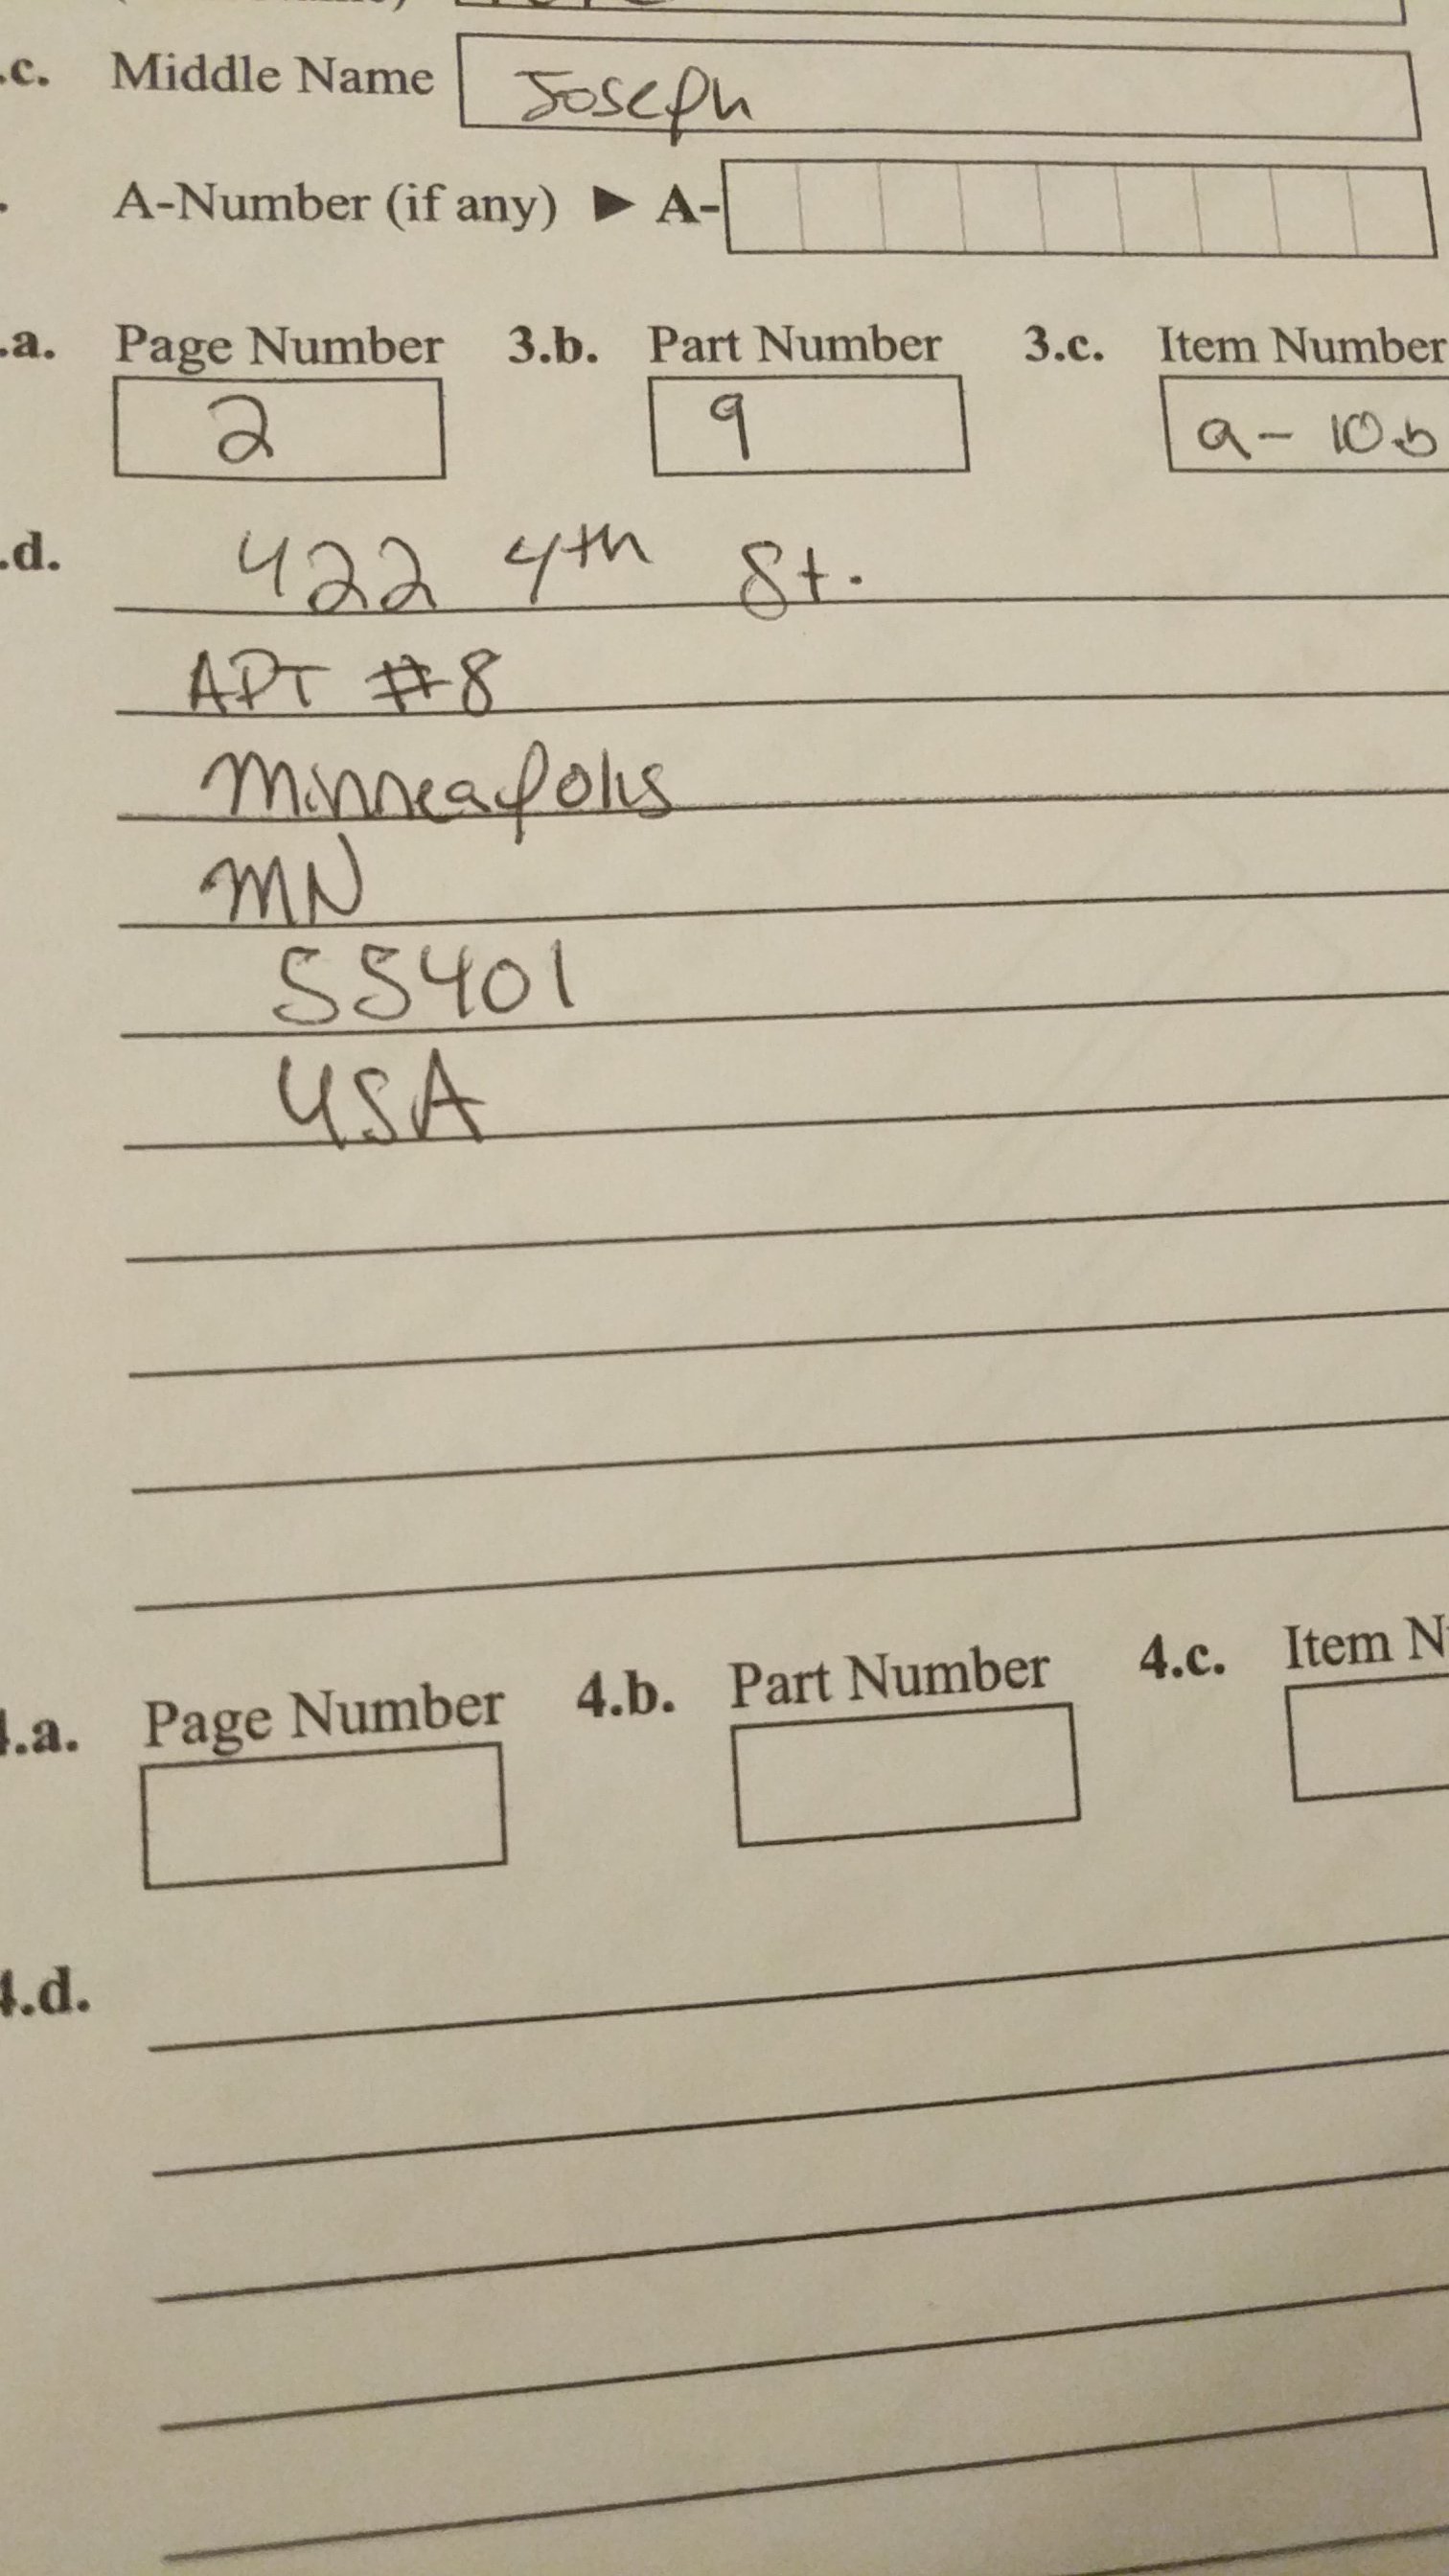 .c. Middle Name Joseph
A-Number (if any) ► A-
.a. Page Number 3.b. Part Number 3.c. Item Number
2 9 9- 10.b
.d. 422 4th St.
APT #8
Minneapolis
MN
55401
USA
4.a. Page Number 4.b. Part Number 4.c. Item N
4.d.